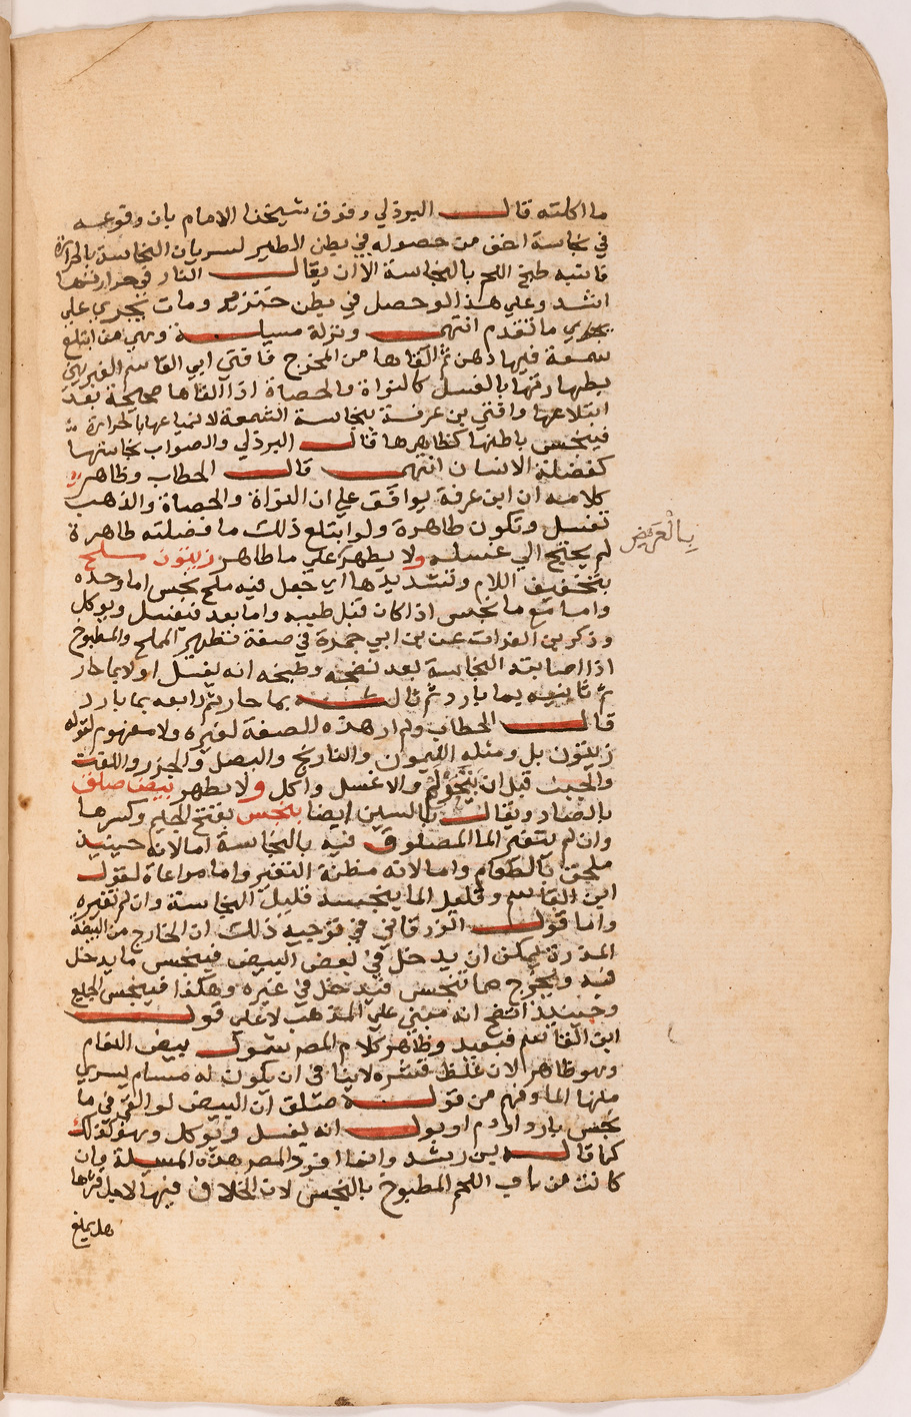 ما اكلته قال البرذلي وفوق شيخنا الامام بان وقوعه
في نجاسة اخف من حصوله في بطن الطير لسريان النجاسة بالحرارة
فاشبه طبخ اللحم بالنجاسة الا ان يقال النار فوحرارتها
اشد وعلي هذا لو حصل في بطن خنزير ومات يجري علي
ما تقدم انتهى ونزلة مسيلة وهي من ابتلع
شمعة فيها دهن ثم القاها من المخرج فافتي ابي القاسم الغبريني
بطهارتها بالغسل كالنواة والحصاة اذا القاها صحيحة بعد
ابتلاعها وافتي بن عرفة بنجاسة الشمعة لانمياعها بالحرارة
فينجس باطنها كظاهرها قال البرذلي والصواب نجاستها
كفضلة الانسان انتهى قال الحطاب وظاهر
كلامه ان ابن عرفة يوافق علي ان النواة والحصاة والذهب
تغسل وتكون طاهرة ولو ابتلع ذلك ما فضلته طاهرة
لم يحتج الي غسله ولا يطهر علي ما طاهر زيتون ملح
بتخفيف اللام وتشديدها اي جعل فيه ملح نجس اما وحده
واما مع ما نجس اذا كان قبل طيبه واما بعد فيغسل ويوكل
وذكر بن الفرات عن بن ابي جمرة في صفة تطهير المملح والمطبوخ
اذا اصابته النجاسة بعد نضجه وطبخه انه يغسل اولا بما حار
ثم ثانيه بما بارد ثم ثالث بما حار ثم رابعه بما بارد
قال الحطاب ولم ار هذه الصفة لغيره ولا مفهوم لقوله
زيتون بل ومثله الليمون والنارنج والبصل والجزر واللفت
والجبن قبل ان والا غسل واكل ولا يطهر بيض صلق
بالصاد ويقال بالسين ايضا بنجس بفتح الجيم وكسرها
وان لم يتغير الما المصلوق فيه بالنجاسة اما لانه حينيذ
ملحق بالطعام واما لانه مظنة التغير واما مراعاة لقول
ابن القاسم وقليل الما ينجسه قليل النجاسة وان لم تغيره
واما قول الزرقاني في توجيه ذلك ان الخارج من البيضة
المذرة يمكن ان يدخل في بعض البيض فينجس ما يدخل
فيه ويخرج مما تنجس فيدخل في غيره وهكذا فينجس الجميع
وحينيذ اتضح انه مبني علي المذهب لا علي قول
ابن القاسم فبعيد وظاهر كلام المص شمول بيض النعام
وهو ظاهر لان غلظ قشره لا ينافي ان يكون له مسام يسري
منها الما وفهم من قوله صلق ان البيض لو القي في ما
نجس بارد او دم او بول انه يغسل ويوكل وهو كذلك
كما قاله بن رشد وانما افرد المص هذه المسيلة وان
كانت من باب اللحم المطبوخ بالنجس لان الخلاف فيها لاجل قشرها
هل يمنع
بالعريض